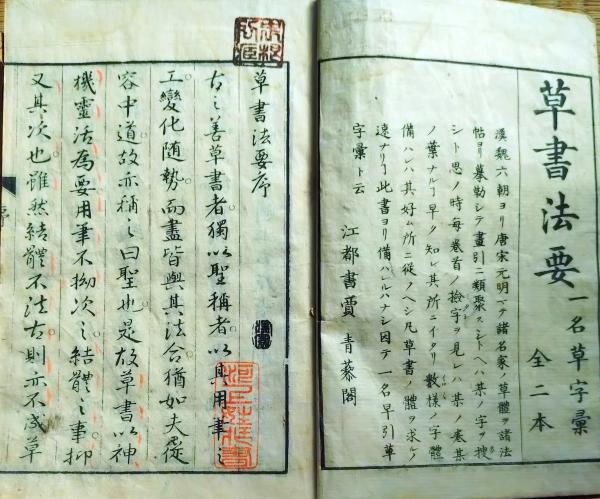 草書法要 一名草字彙 全二本
漢魏六朝ヨリ唐宋元明マテ諸名家ノ草體ヲ諸法
帖ヨリ摹勒シテ畫引ニ類聚ス シトヘハ某ノ字ヲ捜
シト思ノ時毎巻首ノ檢字ヲ見レハ某ノ巻某
ノ葉ナルヿ早ク知レ其所ニイタリ數様ノ字體
備ハレハ其好ム所ニ從ノヘシ凡草書ノ體ヲ求ルノ
速ナリヿ此書ヨリ備ハレルハナシ因テ一名早引草
字彙ト云
江都書賈 青藜閣
草書法要序
古之善草書者獨以聖稱者以其用筆之
工變化随勢而盡皆與其法合猶如夫從
容中道故亦稱之曰聖也是故草書以神
機靈活為要用筆不拗次之結體之事抑
又其次也雖然結體不法古則亦不成草
序